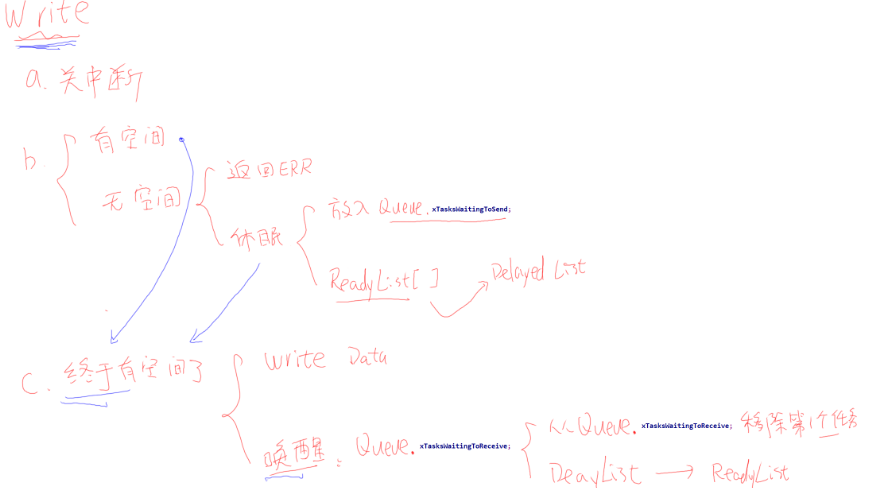 Write
a. 关中断
b. 有空间
无空间
返回ERR
休眠
放入 Queue. xTasksWaitingToSend;
ReadyList[ ]
Delayed List
C. 终于有空间了
Write Data
唤醒: Queue. xTasksWaitingToReceive;
从Queue. xTasksWaitingToReceive; 移除第1个任务
DeayList → ReadyList